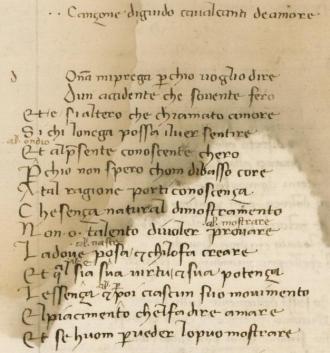 .. Canzone di guido caualcanti de amore
d
Onã mi prega p chio uoglio dire
Dun accidente che souente fero
Et e si altero che chiamato amore
Si chi lonega possa iluer sentire
al. ondio
Et alp̃sente conoscente chero
P chio non spero chom di basso core
A tal ragione porti conoscença
Che sença natural dimostramento
al. mostrare
Non o talento diuoler prouare
al. nasce
La doue posa e chi lo fa creare
Et ql sia sua uirtu e sua potença
Lessença e poi ciascun suo mouimento
El piacimento chel fa dire amare
Et se huom p ueder lo puo mostrare